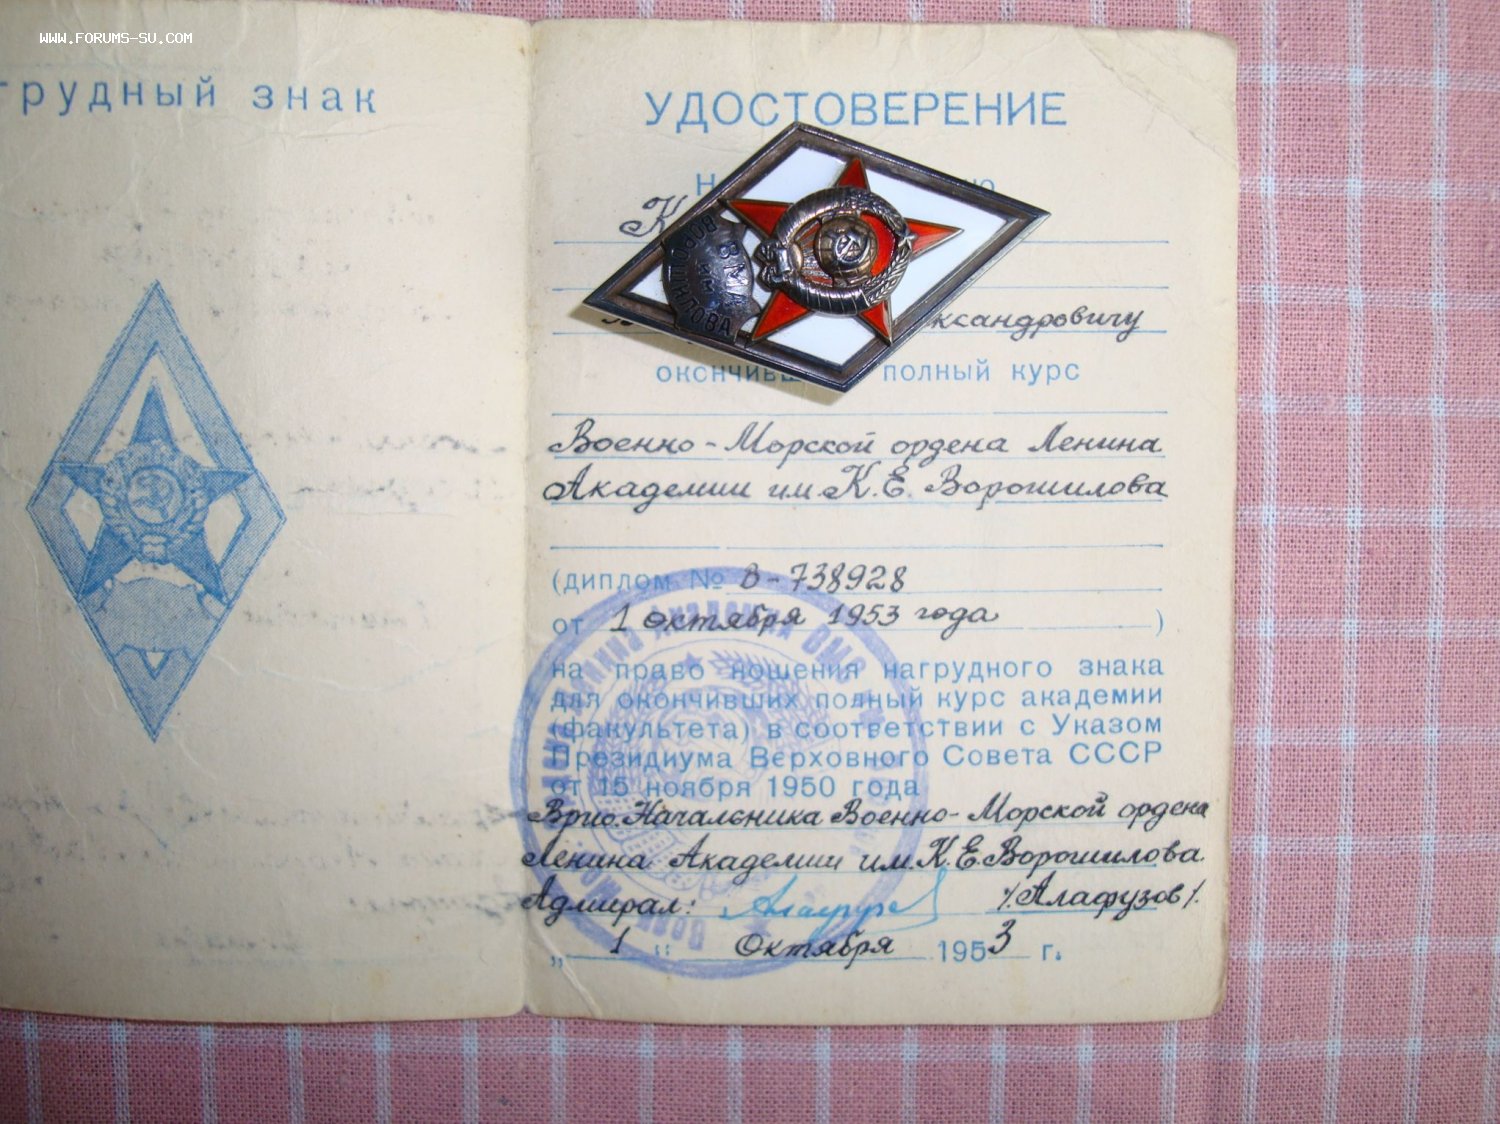 WWW.FORUMS-SU.COM
грудный знак
УДОСТОВЕРЕНИЕ
ВМА
им.
ВОРОШИЛОВА
ксандровичу
полный курс
Военно-Морской ордена Ленина
Академии им. К.Е. Ворошилова
(диплом № В-738928
от 1 октября 1953 года )
на право ношения нагрудного знака
для окончивших полный курс академии
(факультета) в соответствии с Указом
Президиума Верховного Совета СССР
от 15 ноября 1950 года
Врио. Начальника Военно-Морской ордена
Ленина Академии им. К.Е. Ворошилова.
Адмирал: /Алафузов/.
„ 1 " Октября 1953 г.